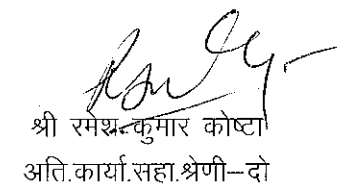 श्री रमेश कुमार कोष्टा
अति.कार्या.सहा.श्रेणी–दो